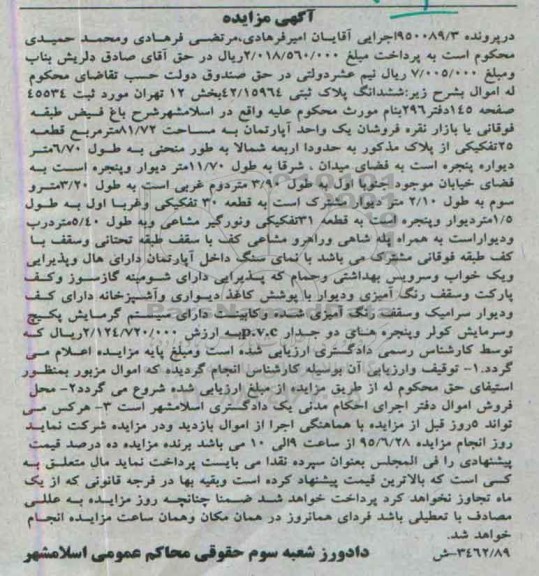 آگهی مزایده
درپرونده ۹۵۰۰۸۹/۳اجرایی آقایان امیرفرهادی،مرتضی فرهادی ومحمد حمیدی
محکوم است به پرداخت مبلغ ۲/۰۱۸/۵۶۰/۰۰۰ریال در حق آقای صادق دلریش بناب
ومبلغ ۷/۰۰۵/۰۰۰ ریال نیم عشردولتی در حق صندوق دولت حسب تقاضای محکوم
له اموال بشرح زیر:ششدانگ پلاک ثبتی ۴۲/۱۵۹۶۴بخش ۱۲ تهران مورد ثبت ۴۵۵۳۴
صفحه ۱۴۵دفتر۲۹۶بنام مورث محکوم علیه واقع در اسلامشهرشرح باغ فیض طبقه
فوقانی یا بازار نقره فروشان یک واحد آپارتمان به مساحت ۸۱/۷۲مترمربع قطعه
۲۵تفکیکی از پلاک مذکور به حدودا اربعه شمالا به طور منحنی به طول ۶/۷۰متر
دیواره پنجره است به فضای میدان . شرقا به طول ۱۱/۷۰متر دیوار وپنجره است به
فضای خیابان موجود جنوبا اول به طول ۳/۹۰ متردوم غربی است به طول ۳/۲۰مترو
سوم به طول ۲/۱۰ متر دیوار مشترک است به قطعه ۳۰ تفکیکی وغربا اول به طول
۱/۵متردیوار وپنجره است به قطعه ۳۱تفکیکی ونورگیر مشاعی وبه طول ۵/۴۰متردرب
ودیواراست به همراه پله شاهی وراهرو مشاعی کف با سقف طبقه تحتانی وسقف با
کف طبقه فوقانی مشترک می باشد با نمای سنگ داخل آپارتمان دارای هال وپذیرایی
ویک خواب وسرویس بهداشتی وحمام که پذیرایی دارای شومینه گازسوز وکف
پارکت وسقف رنگ آمیزی ودیوار با پوشش کاغذ دیواری وآشپزخانه دارای کف
ودیوار سرامیک وسقف رنگ آمیزی شده وکابینت دارای سیستم گرمایش پکیج
وسرمایش کولر وپنجره های دو جدار p.v.cبه ارزش ۲/۱۲۴/۷۲۰/۰۰۰ریال که
توسط کارشناس رسمی دادگستری ارزیابی شده است ومبلغ پایه مزایده اعلام می
گردد.۱- توقیف وارزیابی آن بوسیله کارشناس انجام گردیده که اموال مزبور بمنظور
استیفای حق محکوم له از طریق مزایده از مبلغ ارزیابی شده شروع می گردد۲- محل
فروش اموال دفتر اجرای احکام مدنی یک دادگستری اسلامشهر است ۳- هرکس می
تواند ۵روز قبل از مزایده با هماهنگی اجرا از اموال بازدید ودر مزایده شرکت نماید
روز انجام مزایده ۹۵/۶/۲۸ از ساعت ۹الی ۱۰ می باشد برنده مزایده ده درصد قیمت
پیشنهادی را فی المجلس بعنوان سپرده نقدا می بایست پرداخت نماید مال متعلق به
کسی است که بالاترین قیمت پیشنهاد کرده است وبقیه بها در فرجه قانونی که از یک
ماه تجاوز نخواهد کرد پرداخت خواهد شد ضمنا چنانچه روز مزایده به عللی
مصادف با تعطیلی باشد فردای همانروز در همان مکان وهمان ساعت مزایده انجام
خواهد شد.
۳۴۶۲/۸۹-ش دادورز شعبه سوم حقوقی محاکم عمومی اسلامشهر